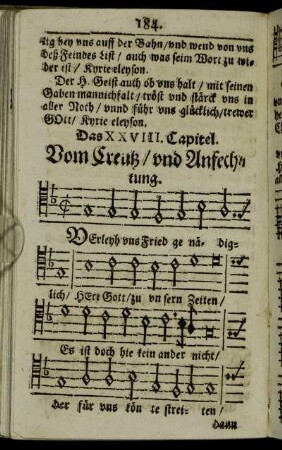 184.
tig bey vns auff der Bahn/vnd wend von vns
deß Feindes List / auch was seim Wort zu wi-
der ist / Kyrie eleyson.
Der H. Geist auch ob vns halt / mit seinen
Gaben mannichfalt / tröst vnd stärck vns in
aller Noth / vnnd führ vns glücklich/trewer
GOtt / Kyrie eleyson.
Das XXVIII. Capitel.
Vom Creutz / vnd Anfech-
tung.
VErleyh vns Fried ge nä- dig-
lich/ HErr Gott/ zu vn sern Zeiten/
Es ist doch hie kein ander nicht/
der für vns kön te strei- ten/
dann